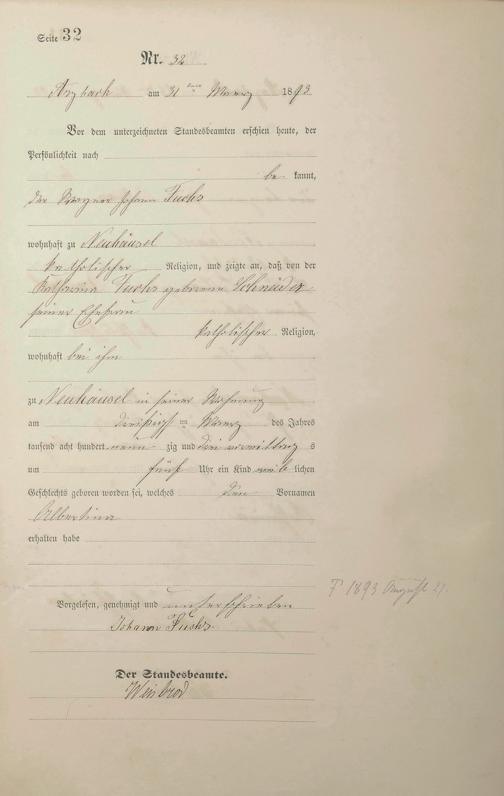 Seite 32
Nr. 32
Arzbach am 31 ten Maerz 1893
Vor dem unterzeichneten Standesbeamten erschien heute, der
Persönlichkeit nach
be kannt,
der Johann Fuchs
wohnhaft zu Neuhäusel
katholischer Religion, und zeigte an, daß von der
Katharina Fuchs geborene Schneider
seiner Ehefrau
katholischer Religion,
wohnhaft bei ihm
zu Neuhäusel in seiner Wohnung
am dreißigsten Maerz des Jahres
tausend acht hundert neun zig und drei vormittag s
um fünf Uhr ein Kind weib lichen
Geschlechts geboren worden sei, welches den Vornamen
Albertina
erhalten habe
† 1893 August 21.
Vorgelesen, genehmigt und unterschrieben
Johann Fuchs
Der Standesbeamte.
Weisbrod